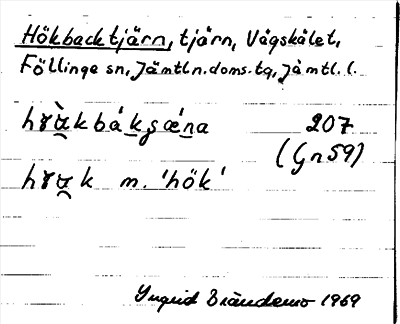 Hökbacktjärn, tjärn, Vågskålet,
Föllinge sn, Jämtln. doms. tg, Jämtl. l.
hɤὰkbákgǽna 207
(Gn 59)
hɤαk m. 'hök'
Ingrid 1969